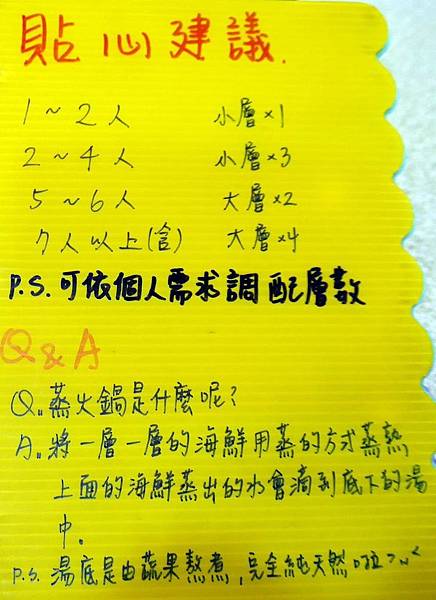 貼心建議.
1～2人 小層×1
2～4人 小層×3
5～6人 大層×2
7人以上(含) 大層×4
P.S.可依個人需求調配層數
Q&A
Q:蒸火鍋是什麼呢?
A:將一層一層的海鮮用蒸的方式蒸熟
上面的海鮮蒸出的水會滴到底下的湯
中。
P.S. 湯底是由蔬果熬煮,完全純天然